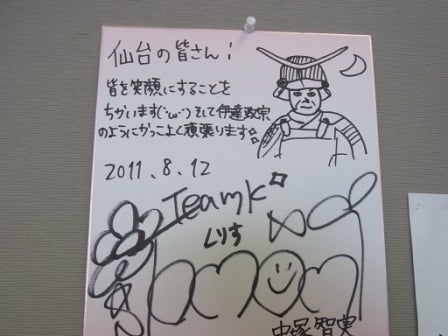 仙台の皆さん!
皆を笑顔にすることを
ちかいます(´･ω･`)そして伊達政宗
のようにかっこよく頑張ります
2011.8.12
Teamk
くりす
tomomi
中塚智実